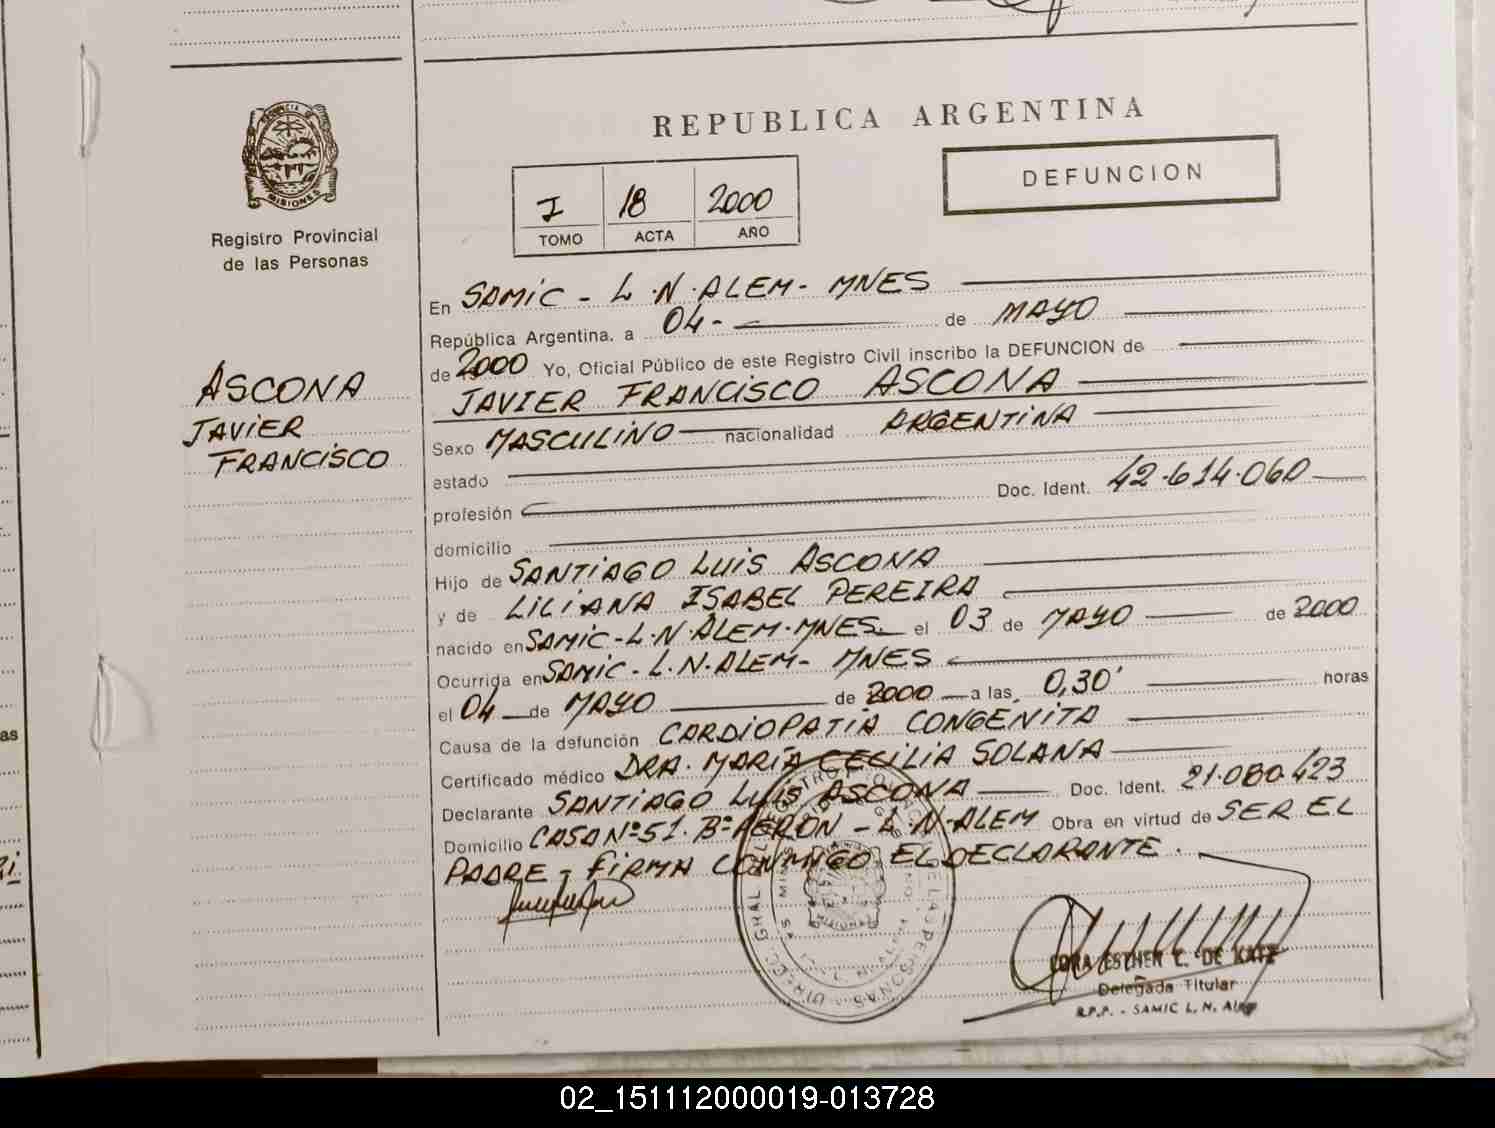 REPUBLICA ARGENTINA
DEFUNCION
I 18 2000
TOMO ACTA AÑO
PROVINCIA DE
MISIONES
Registro Provincial
de las Personas
ASCONA
JAVIER
FRANCISCO
En SAMIC - L.N. ALEM - MNES
República Argentina, a 04- de MAYO
de 2000 Yo, Oficial Público de este Registro Civil inscribo la DEFUNCION de
JAVIER FRANCISCO ASCONA
Sexo MASCULINO nacionalidad ARGENTINA
estado
profesión Doc. Ident. 42.614.060
domicilio
Hijo de SANTIAGO LUIS ASCONA
y de LILIANA ISABEL PEREIRA
nacido en SAMIC-L.N.ALEM-MNES. el 03 de MAYO de 2000
Ocurrida en SAMIC-L.N.ALEM- MNES
el 04 de MAYO de 2000 a las 0,30' horas
Causa de la defunción CARDIOPATIA CONGÉNITA
Certificado médico DRA. MARÍA CECILIA SOLANA
Declarante SANTIAGO LUIS ASCONA Doc. Ident. 21.080.423
Domicilio CASA Nº51. Bº PERON - L.N-ALEM Obra en virtud de SER EL
PADRE - FIRMA CONMIGO EL DECLARANTE.
ESTHER DE KATZ
Delegada Titular
R.P.P. - SAMIC L. N. Alem
02_151112000019-013728